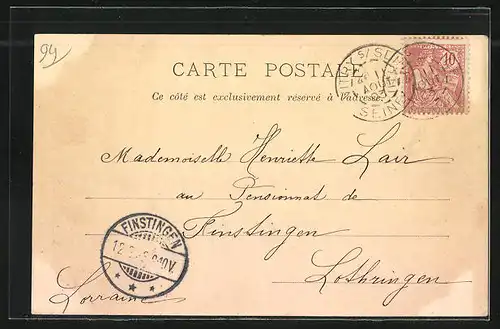 94
CARTE POSTALE
Ce côté est exclusivement réservé à l'adresse
SEINE
10
Mademoiselle Henriette Lair
au Pensionnat de
Finstingen
Lothringen
Lorraine
FINSTINGEN